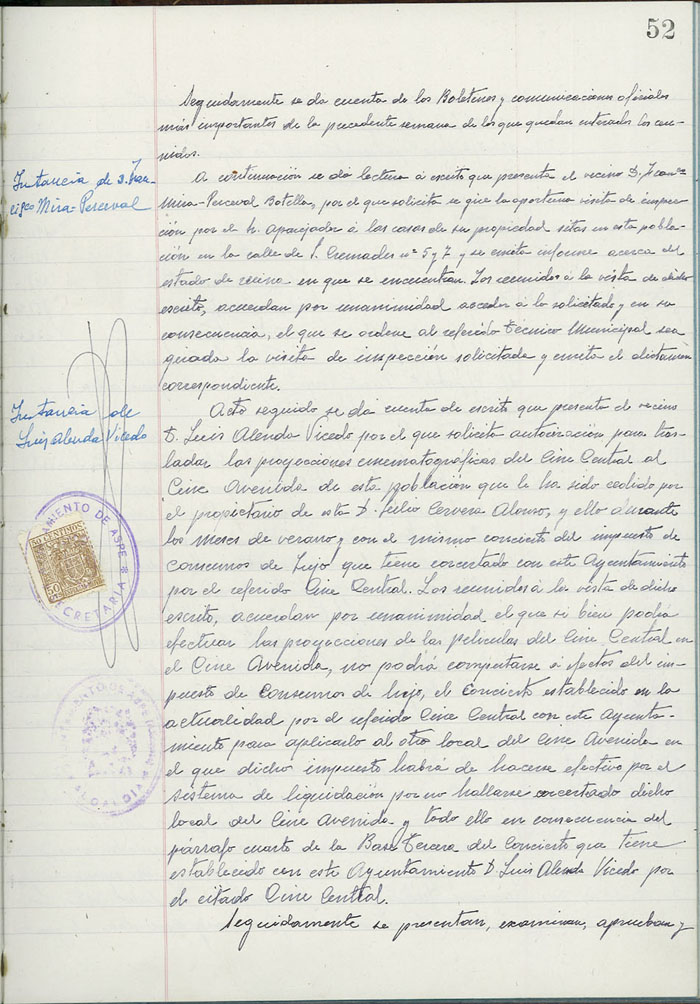 52
Seguidamente se da cuenta de los Boletines y comunicaciones oficiales
más importantes de la precedente semana de los que quedan enterados los reu-
nidos.
Instancia de D. Fran-
cisco Mira-Perceval
A continuación se dá lectura á escrito que presenta el vecino D. Franco
Mira-Perceval Botella, por el que solicita se gire la oportuna visita de inspec-
ción por el Sr. Aparejador á las casas de su propiedad sitas en esta pobla-
ción en la calle de S. Cremades nº 5 y 7 y se emita informe acerca del
estado de ruina en que se encuentran. Los reunidos á la vista de dicho
escrito, acuerdan por unanimidad acceder á lo solicitado y en su
consecuencia, el que se ordene al referido Técnico Municipal sea
girada la visita de inspección solicitada y emita el dictamen
correspondiente.
Instancia de
Luis Alenda Vicedo
Acto seguido se dá cuenta de escrito que presenta el vecino
D. Luis Alenda Vicedo por el que solicita autorización para tras-
ladar las proyecciones cinematográficas del Cine Central al
Cine Avenida de esta población que le ha sido cedido por
el propietario de esta D. Julio Cervera Alonso, y ello durante
los meses de verano y con el mismo concierto del impuesto de
consumos de Lujo que tiene concertado con este Ayuntamiento
por el referido Cine Central. Los reunidos á la vista de dicho
escrito, acuerdan por unanimidad el que si bien podrá
efectuar las proyecciones de las películas del Cine Central en
el Cine Avenida, no podrá computarse á efectos del im-
puesto de Consumos de lujo, el Concierto establecido en la
actualidad por el referido Cine Central con este Ayunta-
miento para aplicarlo al otro local del Cine Avenida en
el que dicho impuesto habrá de hacerse efectivo por el
sistema de liquidación por no hallarse concertado dicho
local del Cine Avenida y todo ello en consecuencia del
párrafo cuarto de la Base Tercera del Concierto que tiene
establecido con este Ayuntamiento D. Luis Alenda Vicedo por
el citado Cine Central.
Seguidamente se presentan, examinan, aprueban y
AYUNTAMIENTO DE ASPE
SECRETARIA
50 CENTIMOS
50
AYUNTAMIENTO DE ASPE
ALCALDIA